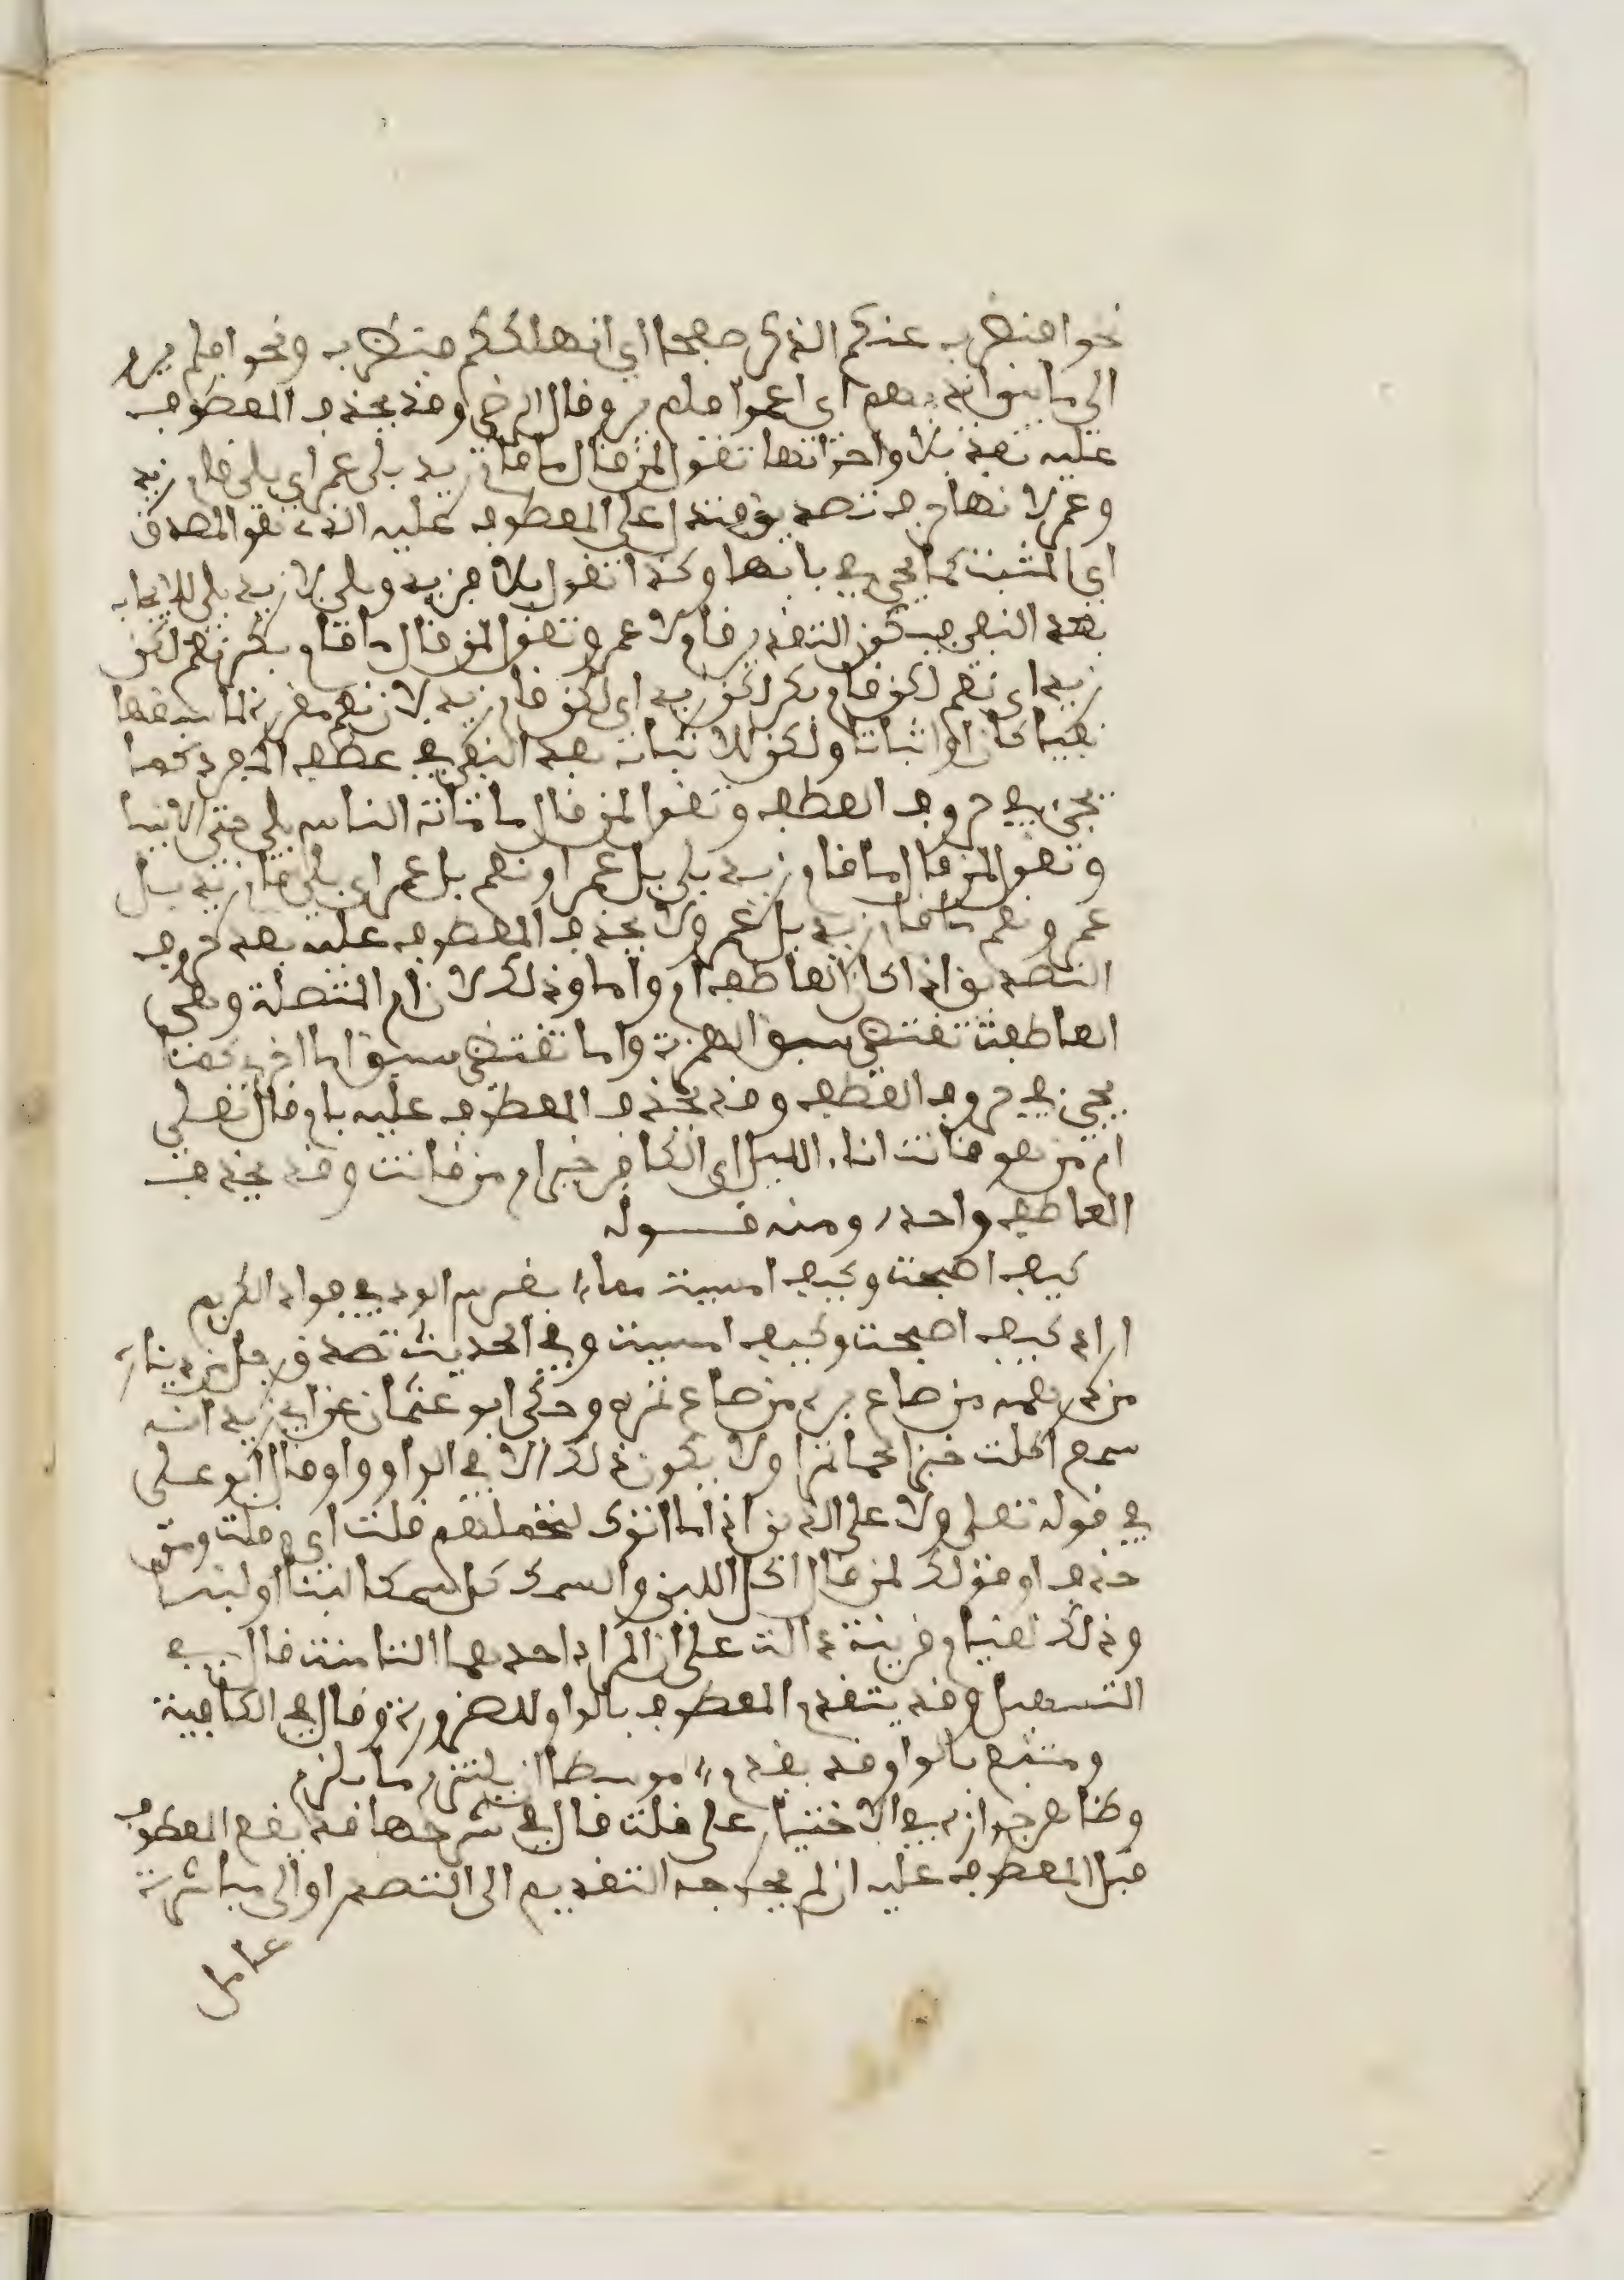 نحو افنضرب عنكم الذكر صفحا اي انهملكم فنضرب ونحو افلم يروا
الى ما بين ايديهم اى اعموا فلم يروا وقال الرضي وقد يحذف المعطوف
عليه بعد بلى واخواتها تقول لمن قال ما قام زيد بلى وعمرو اي بلى قام زيد
وعمرو لانها حرف تصديق فتدل على المعطوف عليه الذي هو المصدق
اي المثبت كما يجي في بابها وكذا تقول بلى فزيد وبلى لا زيد بلى للايجاب
بعد النفي فيكون التقدير قام لا عمرو وتقول لمن قال ما قام بكر نعم لكن
زيد اى نعم لم يقم بكر لكن زيد اى لكن قام زيد لان نعم مقررة لما سبقها
نفيا كان او اثباتا ولكن للاثبات بعد النفي في عطف المفرد كما
يجيء في حروف العطف وتقول لمن قال ما مات الناس بلى حتى الانبيا
وتقول لمن قال ما قام زيد بلى بل عمرو او نعم بل عمرو اى بلى قام زيد بل
عمرو ونعم ما قام زيد بل عمرو ولا يحذف المعطوف عليه بعد حروف
التصديق اذا كان العاطف ام واما وذلك لان ام المتصلة وهي
العاطفة تقتضي سبق الهمزة واما تقتضي سبق اما اخرى كما
يجي في حروف العطف وقد يحذف المعطوف عليه بام قال تعلى
ام من هو قانت اناء الليل اى الكافر خير ام من قانت وقد يحذف
العاطف وحده ومنه قوله
كيف اصبحت وكيف امسيت مما يغرس الود في فواد الكريم
اراد كيف اصبحت وكيف امسيت وفي الحديث تصدق رجل من ديناره
من درهمه من صاع بره من صاع تمره وحكى ابو عثمان عن ابي زيد انه
سمع اكلت خبزا لحما تمرا ولا يكون ذلك الا في الواو واو قال ابو على
في قوله تعلى ولا على الذين اذا ما اتوك لتحملهم قلت اي وقلت ومن
حذف او قولك لمن قال اكل اللبن والسمك كل سمكا لبنا او لبنا
وذلك لقيام قرينة دالت على ان المراد احدهما الثامنة قال في
التسهيل وقد يتقدم المعطوف بالواو للضرورة وقال في الكافية
ومتبع بالواو قد يقدم موسطا ان يلتزم ما يلزم
وظاهره جوازه في الاختيار على قلت قال في شرحها قد يقع المعطوف
قبل المعطوف عليه ان لم يخرجه التقديم الى التصدر او الى مباشرة
عامل